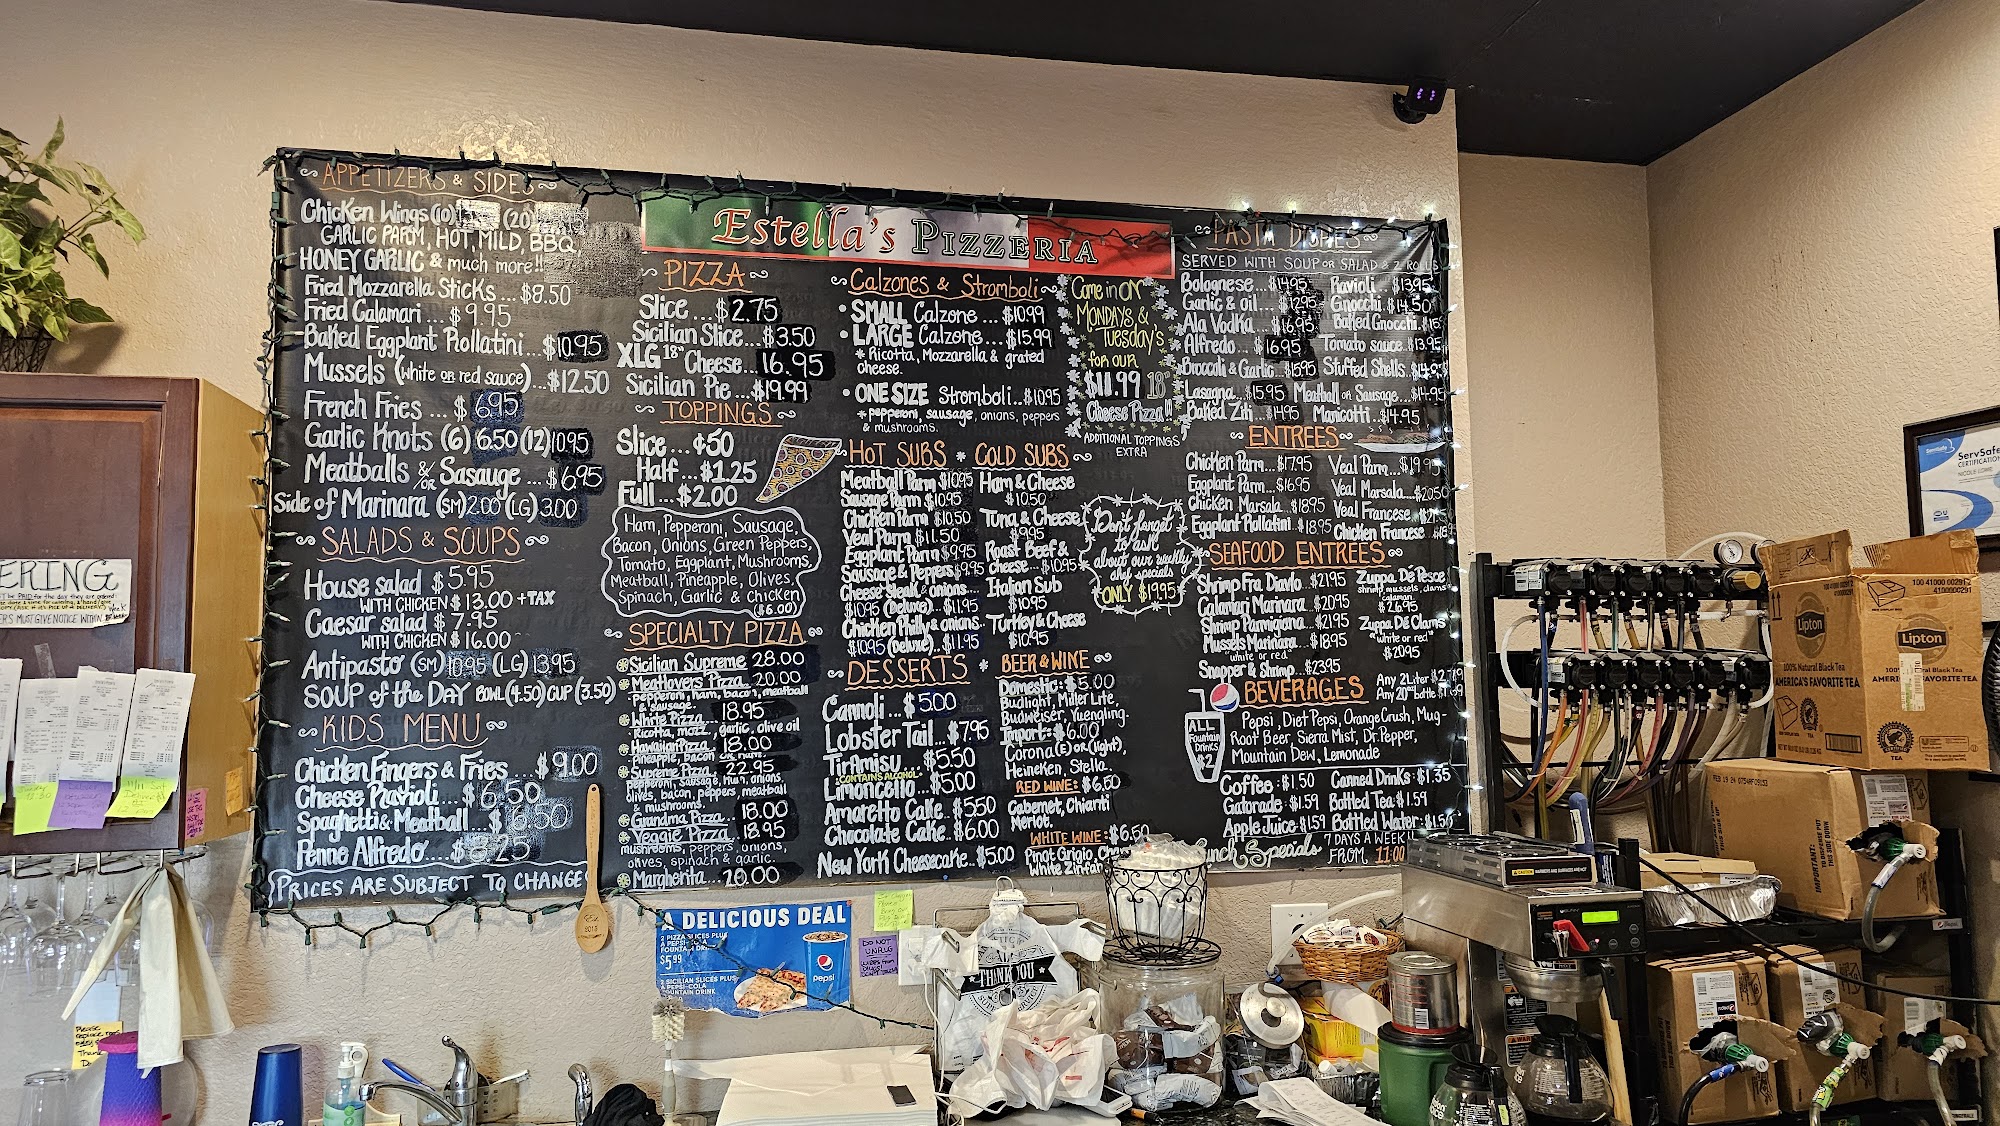 APPETIZERS & SIDES
Chicken Wings (10) (20)
GARLIC PARM, HOT, MILD, BBQ,
HONEY GARLIC & much more!!
Fried Mozzarella Sticks ... $8.50
Fried Calamari ... $9.95
Baked Eggplant Rollatini ... $10.95
Mussels (white OR red sauce) ... $12.50
French Fries ... $6.95
Garlic Knots (6) 6.50 (12) 10.95
Meatballs OR Sasauge ... $6.95
Side of Marinara (SM) 2.00 (LG) 3.00
SALADS & SOUPS
House salad $5.95
WITH CHICKEN $13.00 + TAX
Caesar salad $7.95
WITH CHICKEN $16.00
Antipasto (SM) 10.95 (LG) 13.95
SOUP of the DAY BOWL (4.50) CUP (3.50)
KIDS MENU
Chicken Fingers & Fries ... $9.00
Cheese Ravioli ... $6.50
Spaghetti & Meatball ... $6.50
Penne Alfredo .... $8.25
PRICES ARE SUBJECT TO CHANGE
Estella's PIZZERIA
PIZZA
Slice ... $2.75
Sicilian Slice ... $3.50
XLG 18" Cheese ... 16.95
Sicilian Pie ... $19.99
TOPPINGS
Slice ... $.50
Half ... $1.25
Full ... $2.00
Ham, Pepperoni, Sausage,
Bacon, Onions, Green Peppers,
Tomato, Eggplant, Mushrooms,
Meatball, Pineapple, Olives,
Spinach, Garlic & chicken
($6.00)
SPECIALTY PIZZA
Sicilian Supreme 28.00
Meatlovers Pizza 20.00
pepperoni, ham, bacon, meatball
& sausage.
White Pizza ... 18.95
Ricotta, mozz, garlic, olive oil
Hawaiian Pizza 18.00
pineapple, bacon OR ham.
Supreme Pizza 22.95
pepperoni, sausage, ham, onions,
olives, bacon, peppers, meatball
& mushrooms.
Grandma Pizza 18.00
Veggie Pizza ... 18.95
mushrooms, peppers, onions,
olives, spinach & garlic.
Margherita ... 20.00
Calzones & Stromboli
• SMALL Calzone ... $10.99
• LARGE Calzone ... $15.99
* Ricotta, Mozzarella & grated
cheese.
• ONE SIZE Stromboli ... $10.95
* pepperoni, sausage, onions, peppers
& mushrooms.
Come in ON
MONDAYS &
Tuesday's
for our
$11.99 18"
Cheese Pizza!!
ADDITIONAL TOPPINGS
EXTRA
HOT SUBS * COLD SUBS
Meatball Parm $10.95
Sausage Parm $10.95
Chicken Parm $10.50
Veal Parm $11.50
Eggplant Parm $9.95
Sausage & Peppers $9.95
Cheese Steak & onions...
$10.95 (Deluxe).. $11.95
Chicken Philly & onions..
$10.95 (Deluxe).. $11.95
Ham & Cheese
$10.50
Tuna & Cheese
$9.95
Roast Beef &
Cheese... $10.95
Italian Sub
$10.95
Turkey & Cheese
$10.95
Don't forget
to ask
about our weekly
chef specials
ONLY $19.95
DESSERTS * BEER & WINE
Cannoli ... $5.00
Lobster Tail ... $7.95
Tiramisu ... $5.50
*CONTAINS ALCOHOL*
Limoncello ... $5.00
Amaretto Cake .. $5.50
Chocolate Cake .. $6.00
New York Cheesecake .. $5.00
Domestic: $5.00
Budlight, Miller Lite,
Budweiser, Yuengling.
Import: $6.00
Corona (E) or (light),
Heineken, Stella.
RED WINE: $6.50
Cabernet, Chianti
Merlot.
WHITE WINE: $6.50
Pinot Grigio,
White Zinfan
PASTA DISHES
SERVED WITH SOUP OR SALAD & 2 ROLLS
Bolognese .... $14.95
Garlic & oil .... $12.95
Ala Vodka ... $16.95
Alfredo ... $16.95
Broccoli & Garlic .. $15.95
Lasagna ... $15.95
Baked Ziti ... $14.95
Ravioli ... $13.95
Gnocchi . $14.50
Baked Gnocchi . $15
Tomato sauce .. $13.95
Stuffed Shells ..
Meatball OR Sausage ... $14.95
Manicotti ... $14.95
ENTREES
Chicken Parm ... $17.95
Eggplant Parm ... $16.95
Chicken Marsala ... $18.95
Eggplant Rollatini .. $18.95
Veal Parm ... $19.95
Veal Marsala .... $20.50
Veal Francese
Chicken Francese
SEAFOOD ENTREES
Shrimp Fra Diavlo ... $21.95
Calamari Marinara ... $20.95
Shrimp Parmigiana ... $21.95
Mussels Marinara ... $18.95
"white or red"
Snapper & Shrimp ... $23.95
Zuppa De Pesce
shrimp, mussels, clams
calamari
$26.95
Zuppa De Clams
"white or red"
$20.95
BEVERAGES
Any 2 Liter
Any 20oz bottle
ALL
Fountain
Drinks
$2
Pepsi, Diet Pepsi, Orange Crush, Mug-
Root Beer, Sierra Mist, Dr. Pepper,
Mountain Dew, Lemonade
Coffee : $1.50 Canned Drinks : $1.35
Gatorade : $1.59 Bottled Tea : $1.59
Apple Juice : $1.59 Bottled Water : $1.50
unch Specials 7 DAYS A WEEK!!
FROM 11:00
ERING
A DELICIOUS DEAL
2 PIZZA SLICES PLUS
A PEPSI-COLA
FOUNTAIN DRINK
$5.99
2 SICILIAN SLICES PLUS
A PEPSI-COLA
FOUNTAIN DRINK
pepsi
DO NOT
UNPLUG
THANK YOU
2018
ServSafe
CERTIFICATION
Lipton
100% Natural Black Tea
AMERICA'S FAVORITE TEA
TEA
Lipton
100% Natural Black Tea
AMERICA'S FAVORITE TEA
100 41000 00291
4100000291
FEB 19 24
IMPORTANT:
Please
Thank